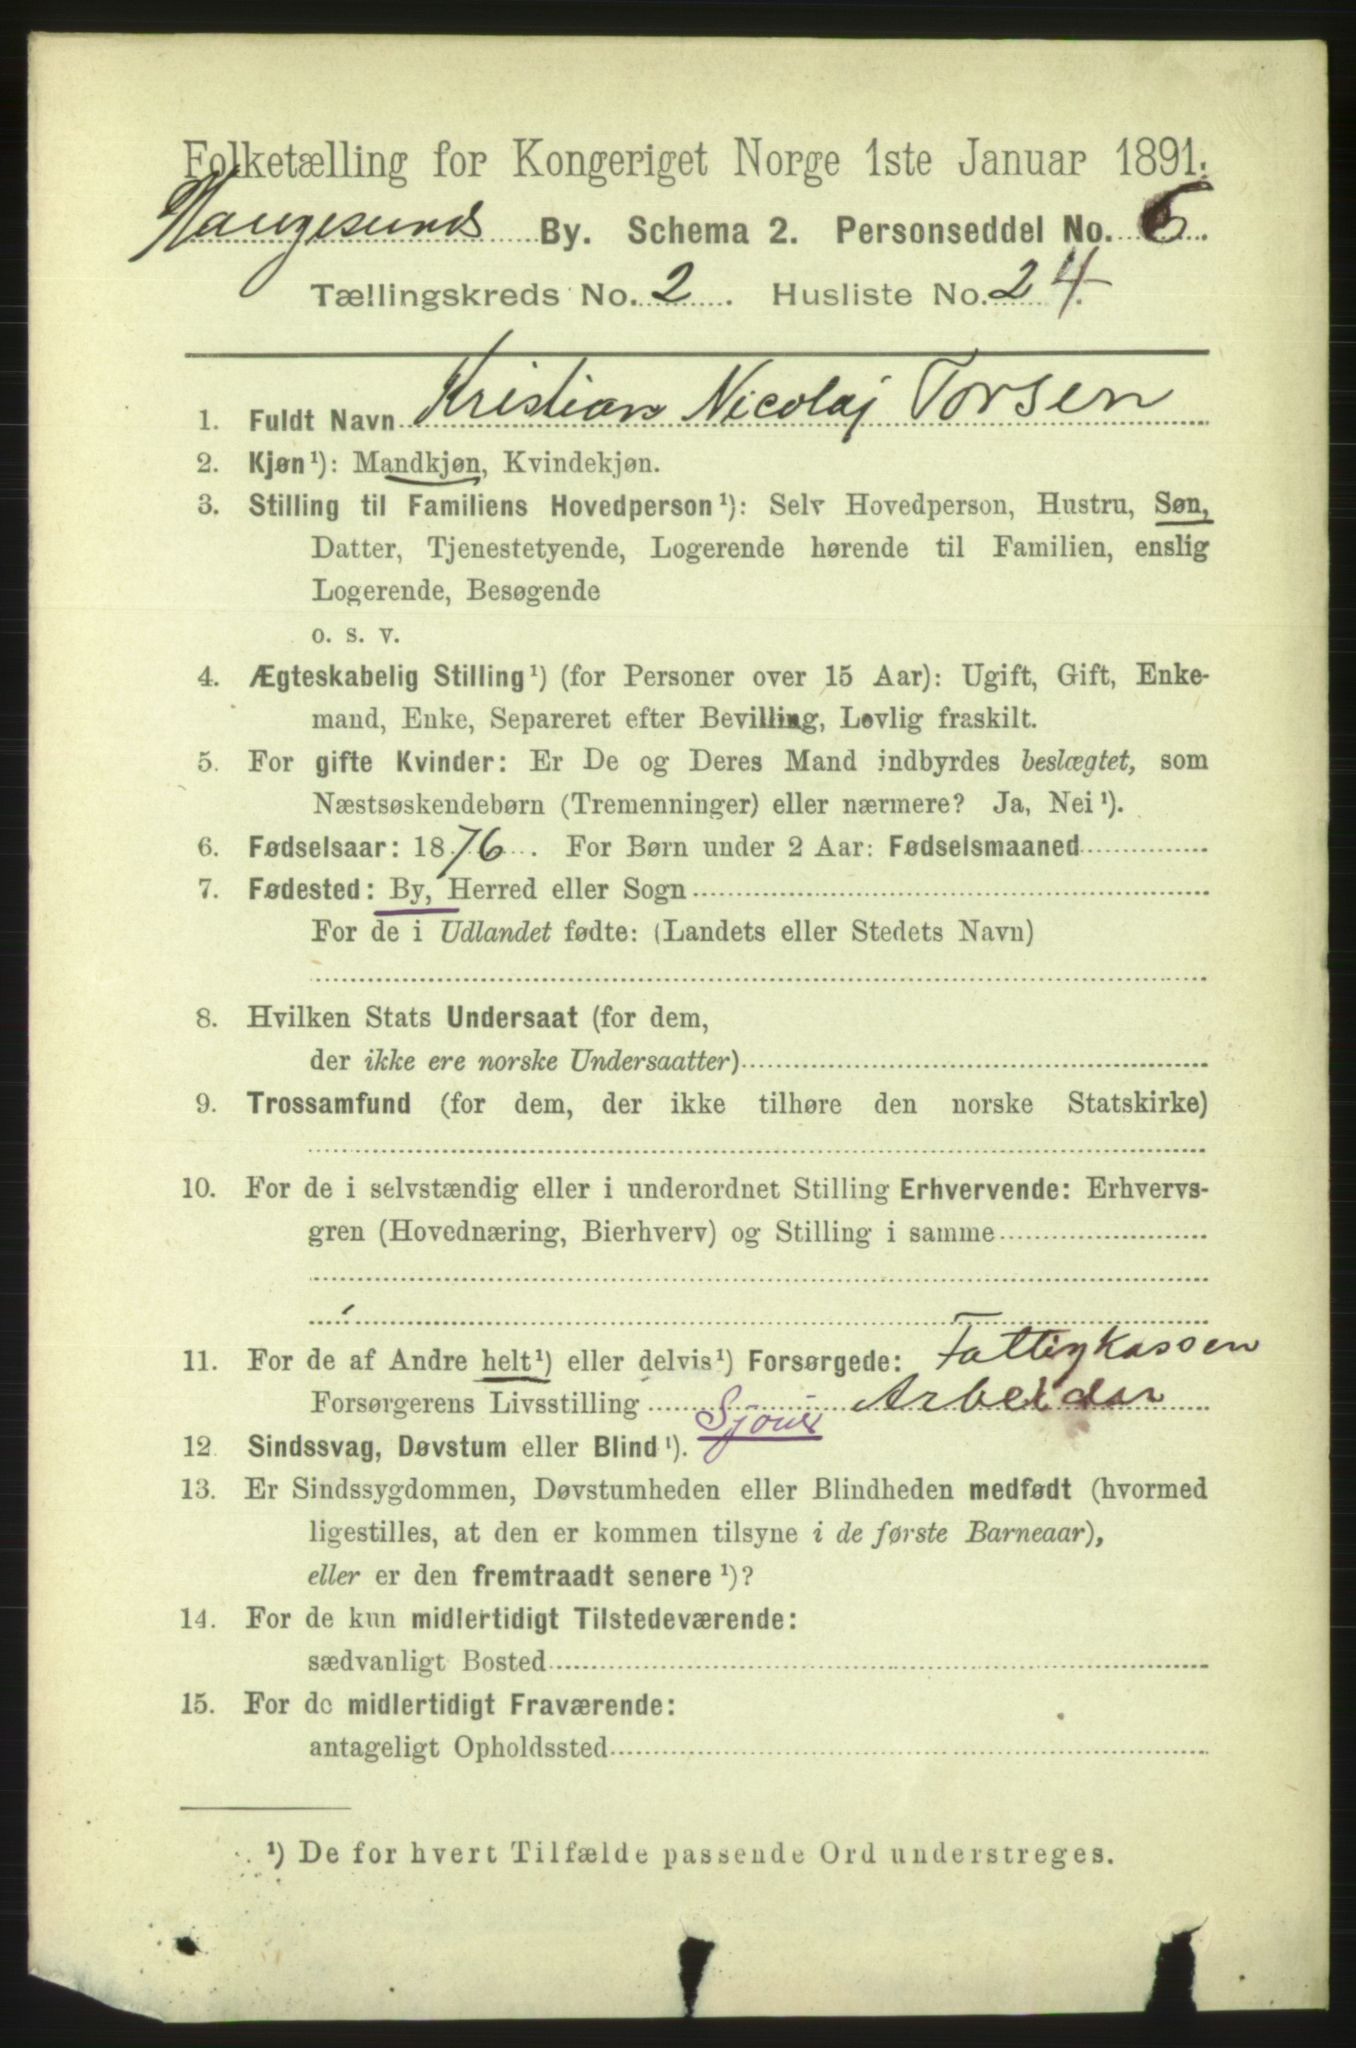 Folketælling for Kongeriget Norge 1ste Januar 1891.
Haugesunds By. Schema 2. Personseddel No. 6.
Tællingskreds No. 2. Husliste No. 24.
1. Fuldt Navn Kristian Nicolaj Torsen
2. Kjøn¹): Mandkjøn, Kvindekjøn.
3. Stilling til Familiens Hovedperson¹): Selv Hovedperson, Hustru, Søn,
Datter, Tjenestetyende, Logerende hørende til Familien, enslig
Logerende, Besøgende
o. s. v.
4. Ægteskabelig Stilling¹) (for Personer over 15 Aar): Ugift, Gift, Enke-
mand, Enke, Separeret efter Bevilling, Lovlig fraskilt.
5. For gifte Kvinder: Er De og Deres Mand indbyrdes beslægtet, som
Næstsøskendebørn (Tremenninger) eller nærmere? Ja, Nei¹).
6. Fødselsaar: 1876. For Børn under 2 Aar: Fødselsmaaned
7. Fødested: By, Herred eller Sogn
For de i Udlandet fødte: (Landets eller Stedets Navn)
8. Hvilken Stats Undersaat (for dem,
der ikke ere norske Undersaatter)
9. Trossamfund (for dem, der ikke tilhøre den norske Statskirke)
10. For de i selvstændig eller i underordnet Stilling Erhvervende: Erhvervs-
gren (Hovednæring, Bierhverv) og Stilling i samme
11. For de af Andre helt¹) eller delvis¹) Forsørgede: Fattigkassen
Forsørgerens Livsstilling Arbeider
12. Sindssvag, Døvstum eller Blind¹).
13. Er Sindssygdommen, Døvstumheden eller Blindheden medfødt (hvormed
ligestilles, at den er kommen tilsyne i de første Barneaar),
eller er den fremtraadt senere¹)?
14. For de kun midlertidigt Tilstedeværende:
sædvanligt Bosted
15. For de midlertidigt Fraværende:
antageligt Opholdssted
¹) De for hvert Tilfælde passende Ord understreges.